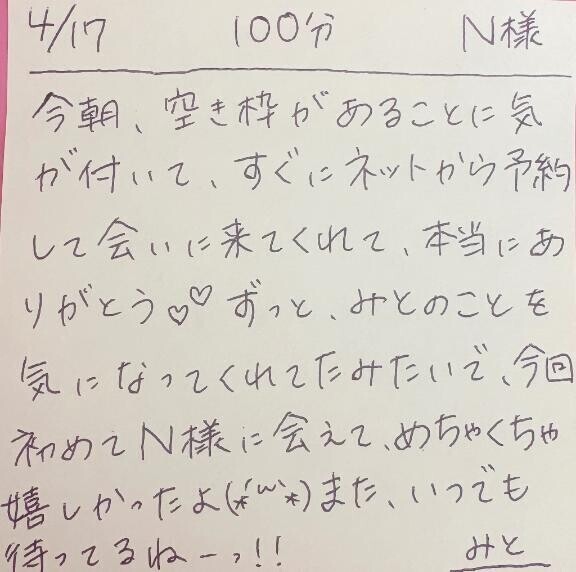 4/17 100分 N様
今朝、空き枠があることに気
が付いて、すぐにネットから予約
して会いに来てくれて、本当にあ
りがとう♡♡ずっと、みとのことを
気になってくれてたみたいで、今回
初めてN様に会えて、めちゃくちゃ
嬉しかったよ(*´ω`*)また、いつでも
待ってるねーっ!!
みと